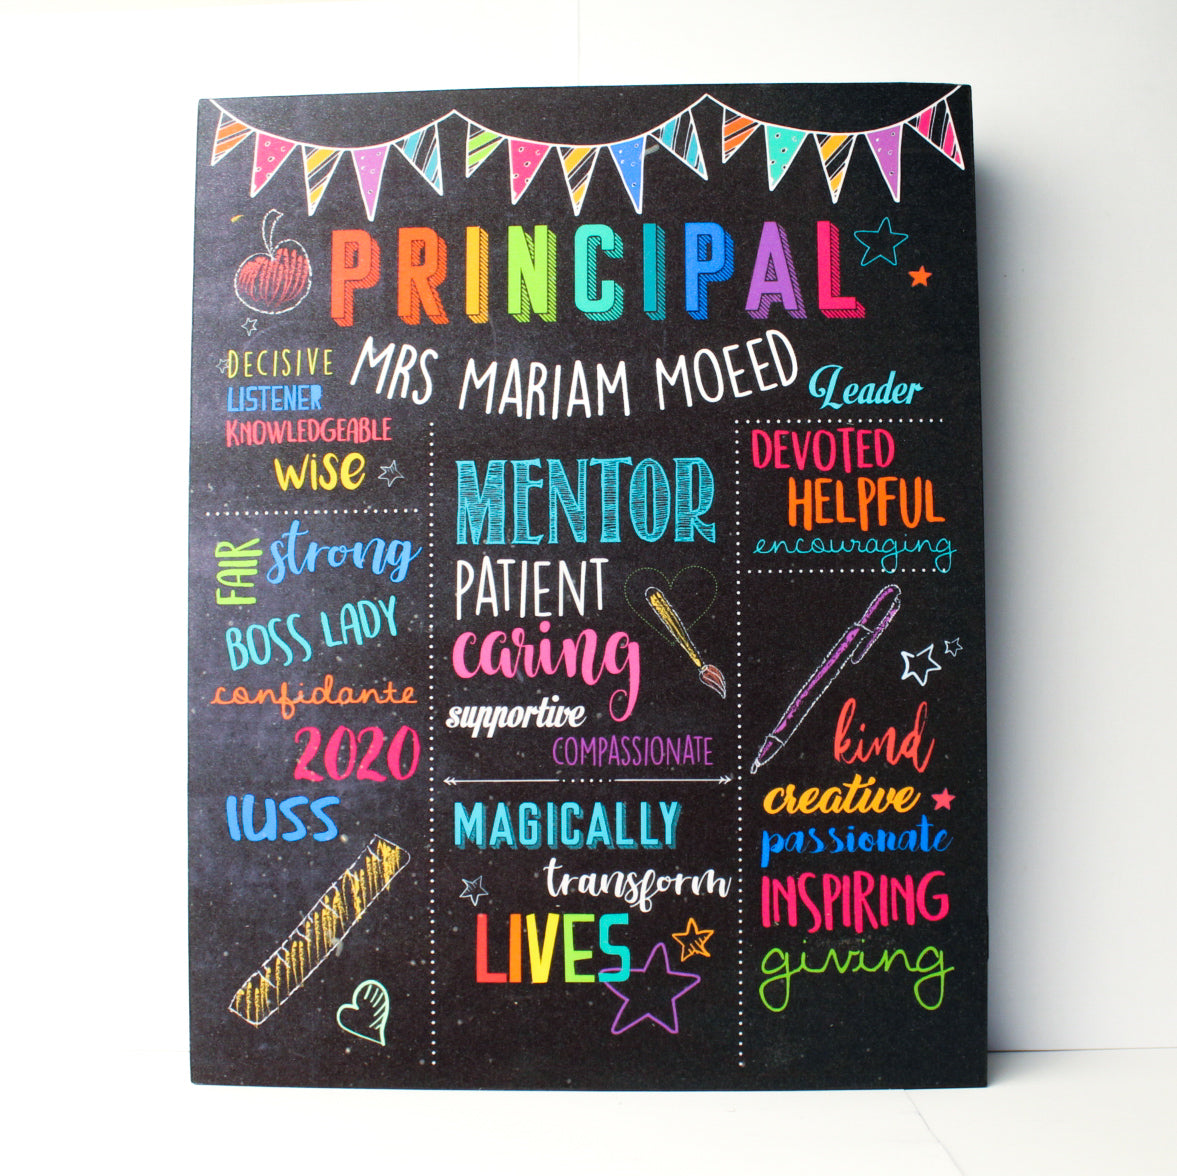 PRINCIPAL
MRS MARIAM MOEED
DECISIVE
LISTENER
KNOWLEDGEABLE
WISE
FAIR
strong
BOSS LADY
confidante
2020
IUSS
MENTOR
PATIENT
caring
supportive
COMPASSIONATE
MAGICALLY
transform
LIVES
Leader
DEVOTED
HELPFUL
encouraging
kind
creative
passionate
INSPIRING
giving